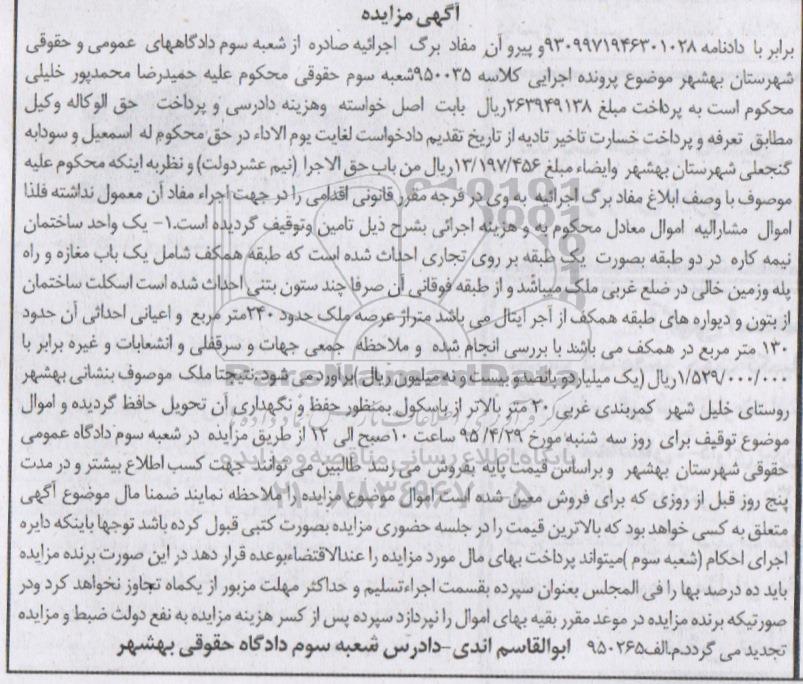 آگهی مزایده
برابر با دادنامه ۹۳۰۹۹۷۱۹۴۶۳۰۱۰۲۸و پیرو آن مفاد برگ اجرائیه صادره از شعبه سوم دادگاههای عمومی و حقوقی
شهرستان بهشهر موضوع پرونده اجرایی کلاسه ۹۵۰۰۳۵شعبه سوم حقوقی محکوم علیه حمیدرضا محمدپور خلیلی
محکوم است به پرداخت مبلغ ۲۶۳۹۴۹۱۳۸ریال بابت اصل خواسته وهزینه دادرسی و پرداخت حق الوکاله وکیل
مطابق تعرفه و پرداخت خسارت تاخیر تادیه از تاریخ تقدیم دادخواست لغایت یوم الاداء در حق محکوم له اسمعیل و سودابه
گنجعلی شهرستان بهشهر وایضاء مبلغ ۱۳/۱۹۷/۴۵۶ریال من باب حق الاجرا (نیم عشردولت) و نظربه اینکه محکوم علیه
موصوف با وصف ابلاغ مفاد برگ اجرائیه به وی در فرجه مقرر قانونی اقدامی را در جهت اجراء مفاد آن معمول نداشته فلذا
اموال مشارالیه اموال معادل محکوم به و هزینه اجرائی بشرح ذیل تامین وتوقیف گردیده است.۱- یک واحد ساختمان
نیمه کاره در دو طبقه بصورت یک طبقه بر روی تجاری احداث شده است که طبقه همکف شامل یک باب مغازه و راه
پله وزمین خالی در ضلع غربی ملک میباشد و از طبقه فوقانی آن صرفا چند ستون بتنی احداث شده است اسکلت ساختمان
از بتون و دیواره های طبقه همکف از آجر ایتال می باشد متراژ عرصه ملک حدود ۲۴۰متر مربع و اعیانی احداثی آن حدود
۱۳۰ متر مربع در همکف می باشند با بررسی انجام شده و ملاحظه جمعی جهات و سرقفلی و انشعابات و غیره برابر با
۱/۵۲۹/۰۰۰/۰۰۰ریال (یک میلیاردو پانصدو بیست و نه میلیون ریال )براورد می شود.نتیجتا ملک موصوف بنشانی بهشهر
روستای خلیل شهر کمربندی غربی ۲۰ متر بالاتر از باسکول بمنظور حفظ و نگهداری آن تحویل حافظ گردیده و اموال
موضوع توقیف برای روز سه شنبه مورخ ۹۵/۴/۲۹ ساعت ۱۰صبح الی ۱۲ از طریق مزایده در شعبه سوم دادگاه عمومی
حقوقی شهرستان بهشهر و براساس قیمت پایه بفروش می رسد طالبین می توانند جهت کسب اطلاع بیشتر و در مدت
پنج روز قبل از روزی که برای فروش معین شده است اموال موضوع مزایده را ملاحظه نمایند ضمنا مال موضوع آگهی
متعلق به کسی خواهد بود که بالاترین قیمت را در جلسه حضوری مزایده بصورت کتبی قبول کرده باشد توجها باینکه دایره
اجرای احکام (شعبه سوم )میتواند پرداخت بهای مال مورد مزایده را عندالاقتضاءبوعده قرار دهد در این صورت برنده مزایده
باید ده درصد بها را فی المجلس بعنوان سپرده بقسمت اجراءتسلیم و حداکثر مهلت مزبور از یکماه تجاوز نخواهد کرد ودر
صورتیکه برنده مزایده در موعد مقرر بقیه بهای اموال را نپردازد سپرده پس از کسر هزینه مزایده به نفع دولت ضبط و مزایده
تجدید می گردد.م.الف۹۵۰۲۶۵ ابوالقاسم اندی-دادرس شعبه سوم دادگاه حقوقی بهشهر